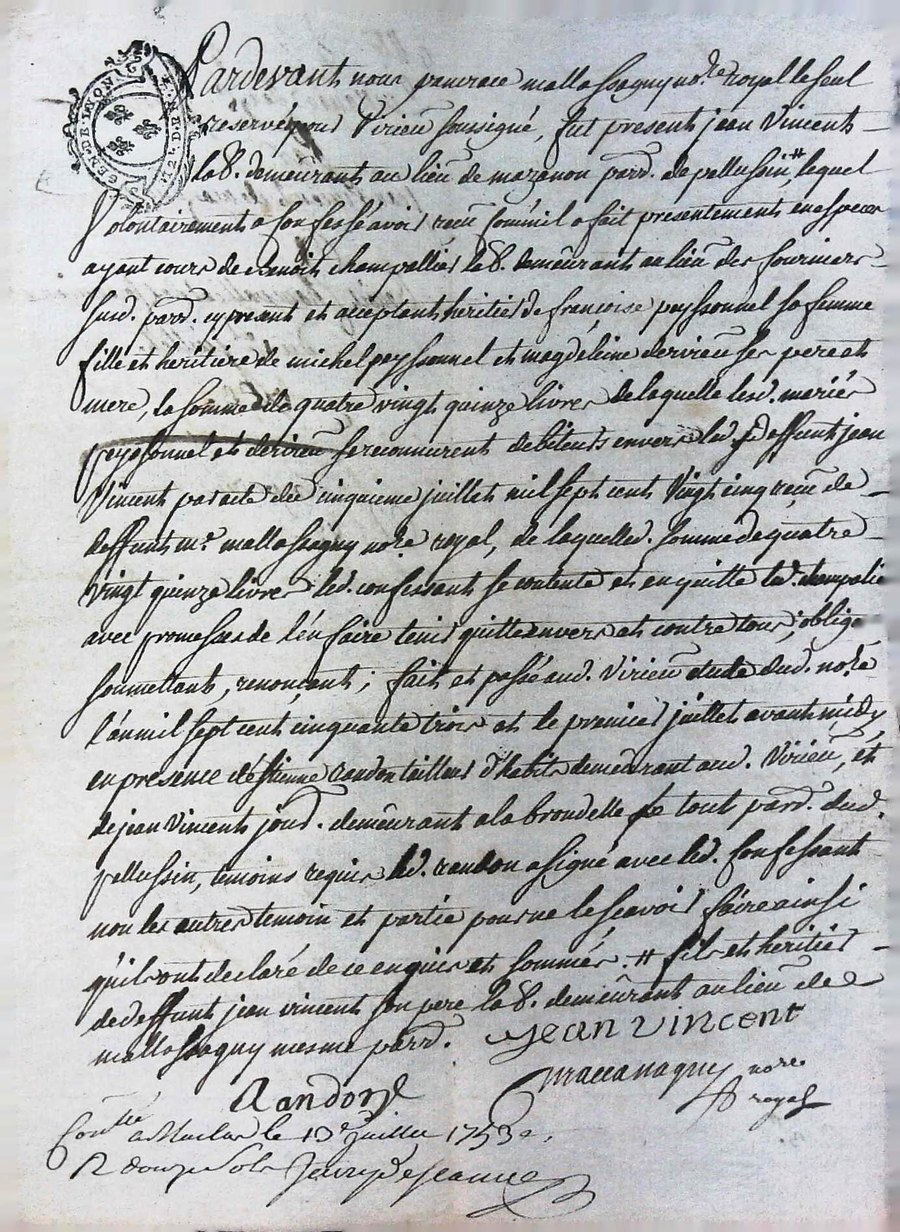 GEN. DE LYON
Pardevant nous pancrace mallassagny no.re royal le seul
reservé pour Virieu soussigné, fut present jean Vincent
la8.r demeurant au lieu de mazenon parr. de pellussin # lequel
Volontairement a confessé avoir reçu comme il a fait presentement en especes
ayant cours de Benoit champallier la8.r demeurant au lieu des fourniers
susd. parr. cy present et acceptant heritier de françoise peyssonnel sa femme
fille et heritiere de michel peyssonnel et magdeleine derieu ses pere et
mere, la somme de quatre vingt quinze livres de laquelle lesd. mariés
peyssonnel et derieu se reconnurent debiteurs envers led. deffunt jean
Vincent par acte du cinquieme juillet mil sept cent vingt cinq reçu de
deffunt m.e mallassagny no.re royal, de laquelle d. somme de quatre
vingt quinze livres led. confessant se contente et en quitte led. champalie
avec promesses de l'en faire tenir quitte envers et contre tous; oblige
soumettant, renonçant; fait et passé aud. Virieu etude dud. no.re
l'an mil sept cent cinquante trois et le premier juillet avant midy
en presence d'Estienne randon tailleur d'habits demeurant aud. Virieu, et
de jean Vincent jour. demeurant a la brondelle le tout parr. dud.
pellussin, temoins requis led. randon a signé avec led. confessant
non les autres temoin et partie pour ne le sçavoir faire ainsi
qu'ils ont declaré de ce enquis et sommés. # fils et heritier
de deffunt jean vincent son pere la8.r demeurant au lieu de
mallassagny mesme parr. Jean Vincent
Randon
mallassagny no.re
royal
Con.lé a Maclas le 13e juillet 1753.
R douze sols